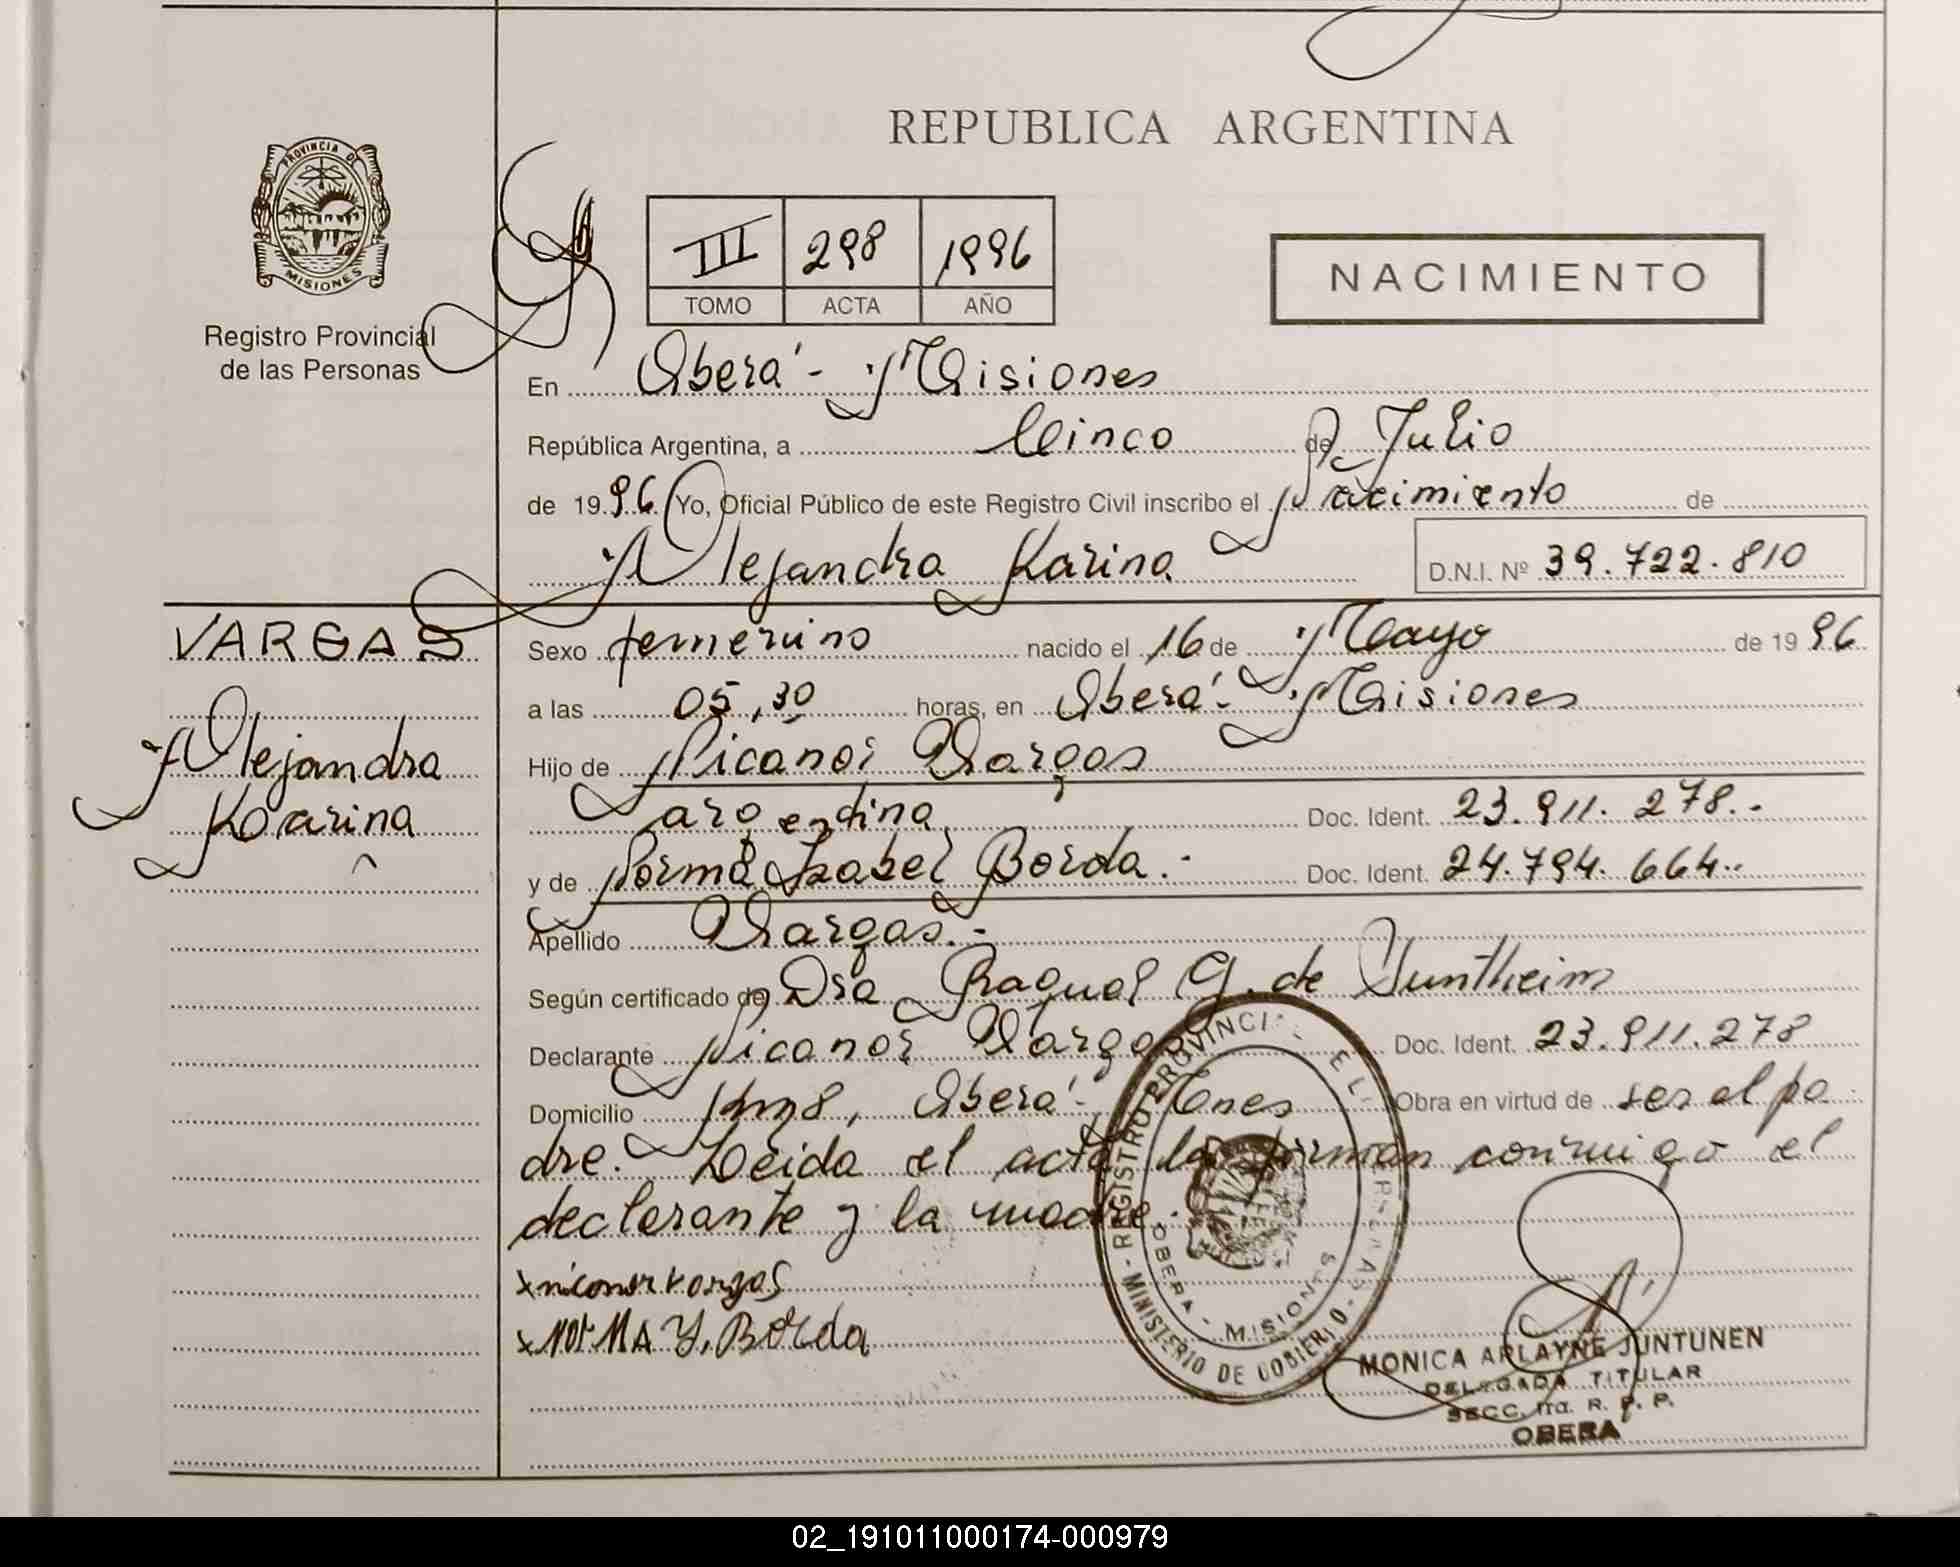 REPUBLICA ARGENTINA
PROVINCIA DE
MISIONES
Registro Provincial
de las Personas
III 298 1996
TOMO ACTA AÑO
NACIMIENTO
En Oberá - Misiones
República Argentina, a Cinco de Julio
de 1996 Yo, Oficial Público de este Registro Civil inscribo el Nacimiento de
Alejandra Karina D.N.I. Nº 39.722.810
VARGAS
Alejandra
Karina
Sexo femenino nacido el 16 de Mayo de 1996
a las 05,30 horas, en Oberá - Misiones
Hijo de Nicanor Vargas
argentina Doc. Ident. 23.911.278.-
y de Norma Isabel Borda.- Doc. Ident. 24.794.664.-
Apellido Vargas.-
Según certificado de Dra Raquel G. de Suntheim
Declarante Nicanor Vargas Doc. Ident. 23.911.278
Domicilio Km 8, Oberá - Mnes Obra en virtud de ser el pa
dre. Leida el acta la firman conmigo el
declarante y la madre.
x nicanor vargas
x NorMA Y. Borda
REGISTRO PROVINCIAL DE LAS PERSONAS
MINISTERIO DE GOBIERNO
OBERA - MISIONES
MONICA ARLAYNE JUNTUNEN
DELEGADA TITULAR
SECC. 1ra. R. P. P.
OBERA
02_191011000174-000979